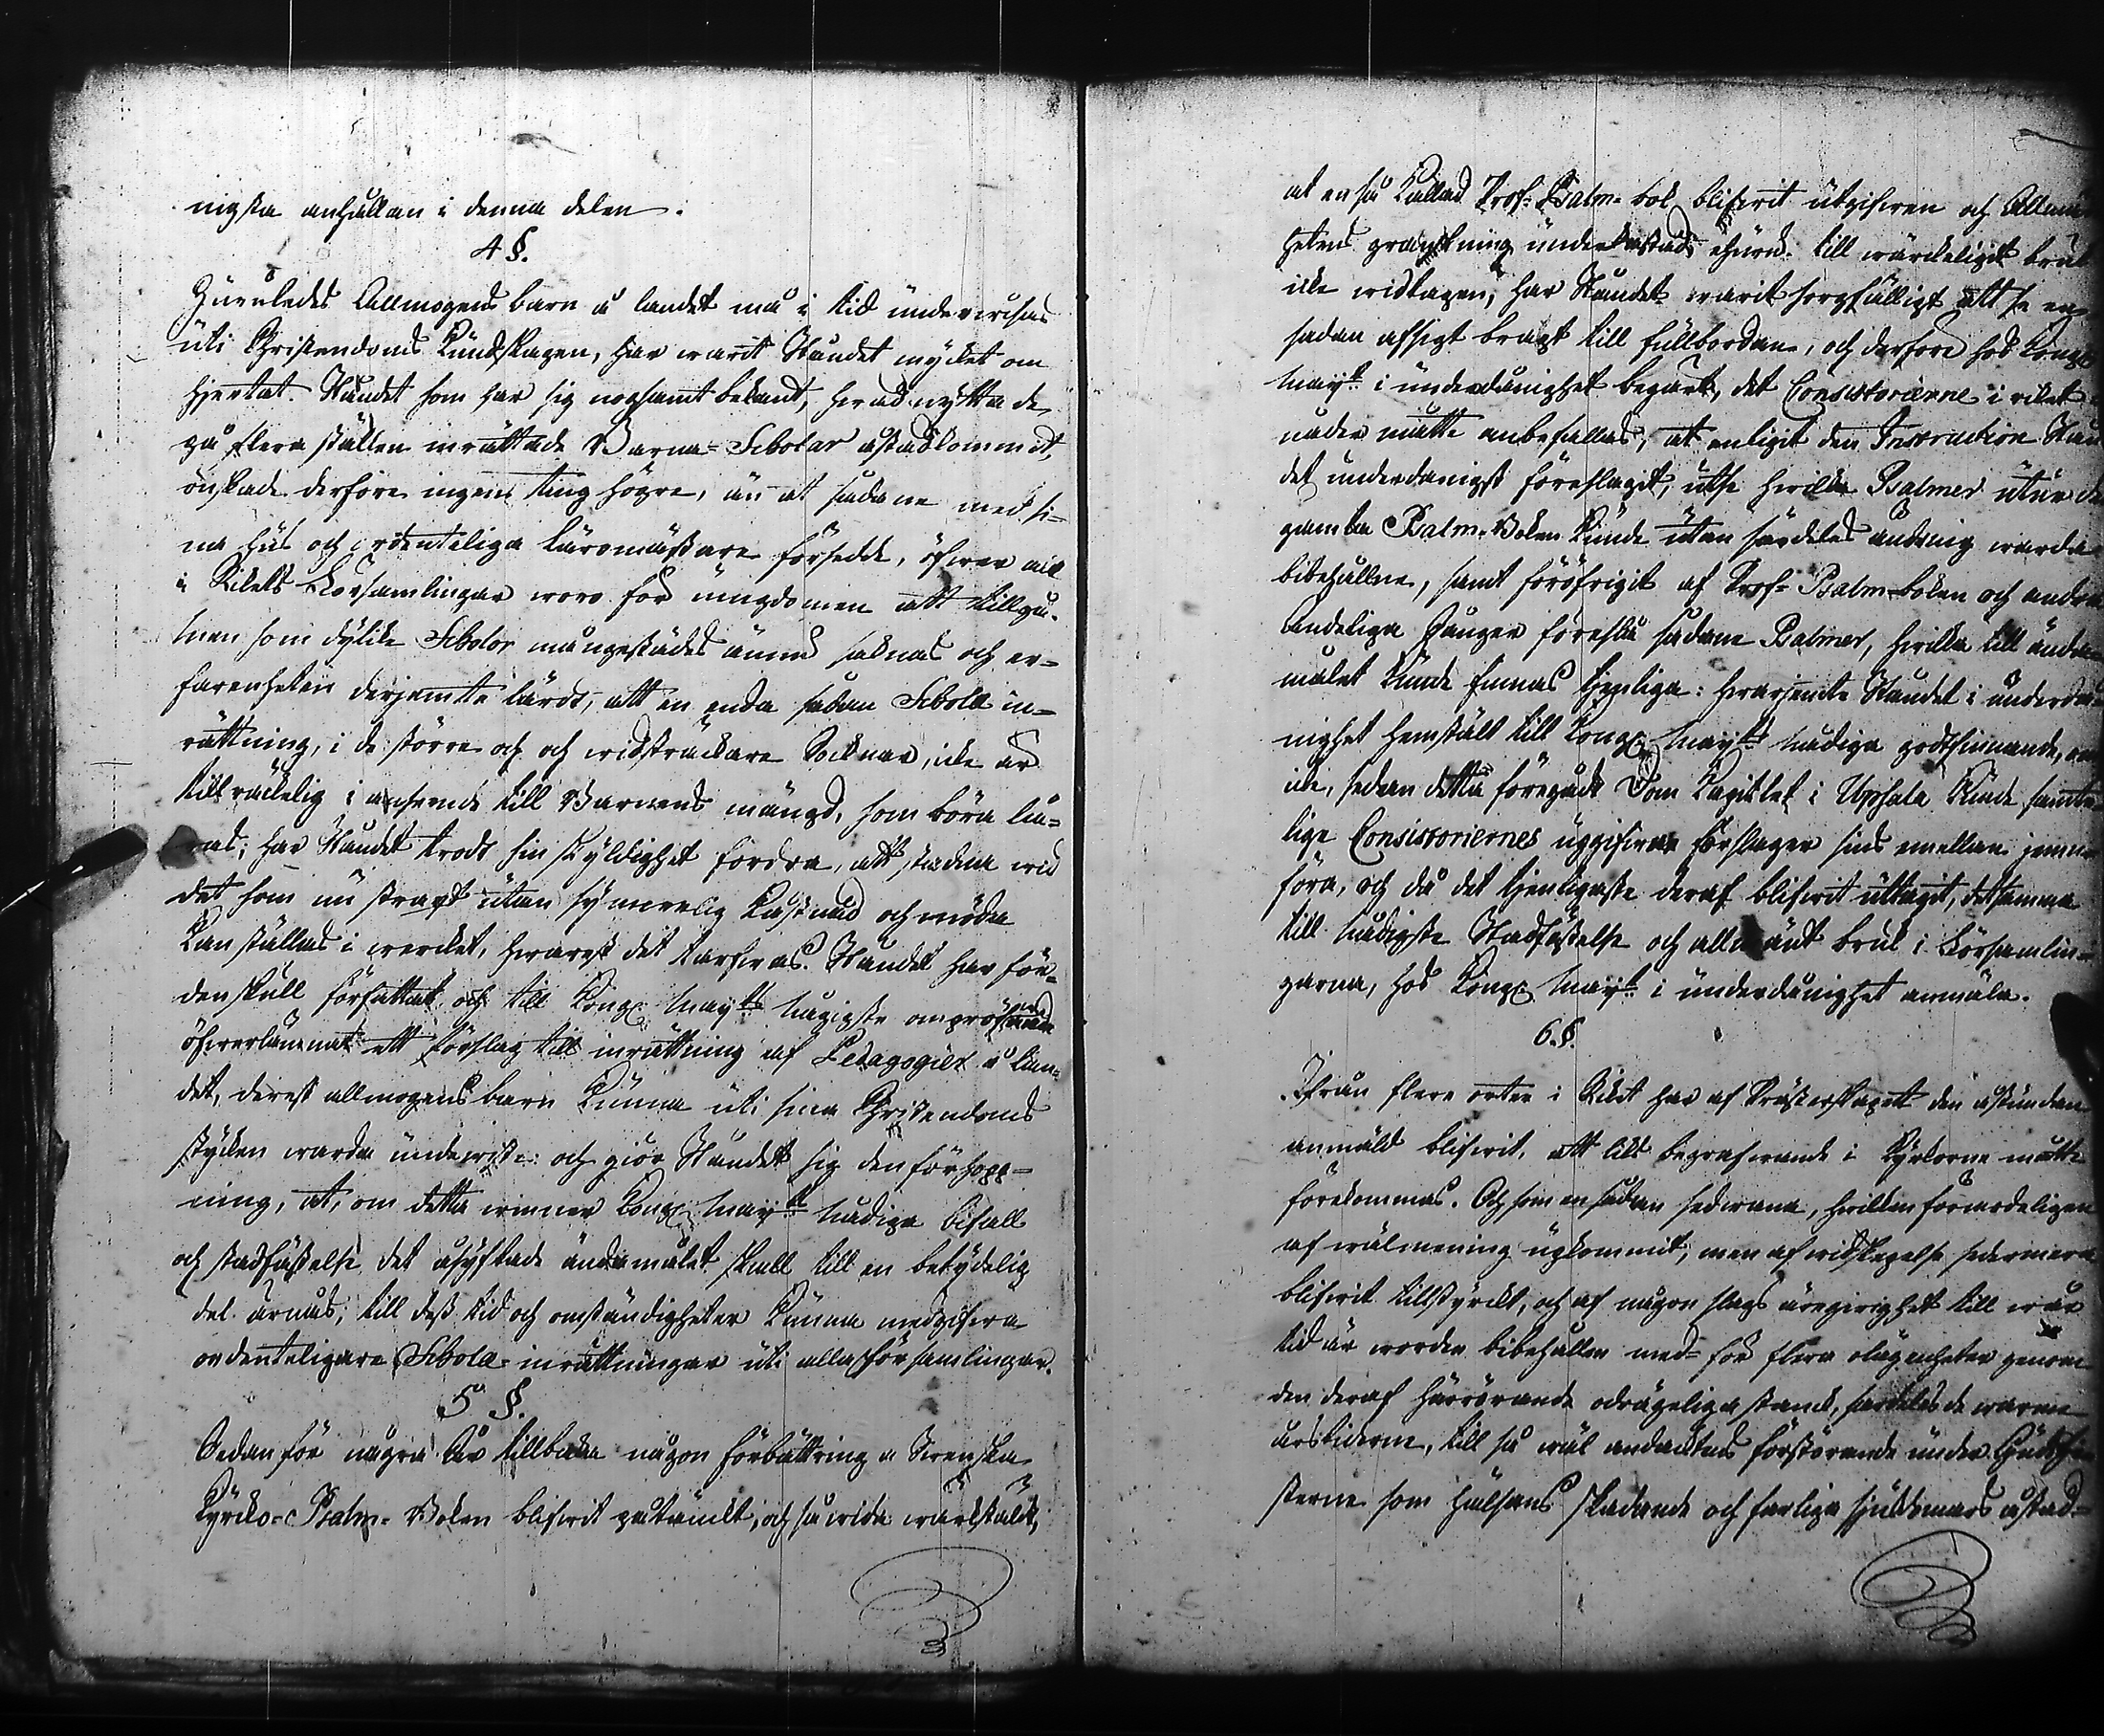 nigsta anhållan i denna delen.
4 §.
Huruledes Allmogens barn å landet må i tid underwisas
uti Christendoms Kundskapen, har warit Ståndet mycket om
hjertat. Ståndet som har sig nogsamt bekant, hwad nytta de
på flera ställen inrättade Barna-Scholar åstadkommit,
önskade derföre ingen ting högre, än at sådane med si-
na hus och ordenteliga läromästare försedde, öfwer alt
i Rikets Församlingar woro för ungdomen att tillgå.
Men som dylike Scholor mångestädes ännu saknas och er-
farenheten derjemte lärdt, att en enda sådan Schole in-
rättning, i de större och och widsträcktare Socknar, icke är
tillräckelig i anseende till Barnens mängd, som böra lä-
ras; har Ståndet trodt sin skyldighet fordra, att stadna wid
det som nu straxt utan synnerlig kostnad och möda
kan ställas i wercket, hwarest det tarfwas. Ståndet har för-
denskull författat och till Kongl. Mayts nådigste ompröfwande
öfwerlämnat ett förslag till inrättning af Pedagogier å lan-
det, derest allmogens barn kunna uti sina Christendoms
stycken warda underwiste: och giör Ståndet sig den förhopp-
ning, at, om detta winner Kongl. Mayts nådiga bifall
och stadfästelse, det åsyftade ändamålet skall till en betydelig
del ärnås; till dess tid och omständigheter kunna medgifwa
ordenteligare Schole-inrättningar uti alla församlingar.
5 §.
Sedan för några år tillbaka någon förbättring a Swenska
Kyrko-Psalm-Boken blifwit påtänckt, och så wida wärkstäld,
at en så kallad Prof-Psalm-bok blifwit utgifwen och Allmän-
hetens granskning underkastad, ehuru till wärckeligit bruk
icke widtagen, har Ståndet warit sorgfälligt att se en
sådan afsigt bragt till fullbordan, och derföre hos Kongl.
Mayt i underdånighet begärt, det Consistorierne i riket
nåder måtte anbefallas, at enligit den Instruction Stån-
det underdånigst föreslagit, utse hwilka Psalmer utur de
gamla Psalm-Boken kunde utan särdeles ändring warda
bibehållne, samt föröfrigit af Prof-Psalm-boken och andra
Andeliga Sånger föreslå sådane Psalmer, hwilka till ända-
målet kunde finnas tjenliga: hwarjemte Ståndet i underdå-
nighet hemstält till Kongl. Mayts nådiga godtfinnande, om
icke, sedan detta föregådt Dom Capitlet i Upsala kunde samte-
lige Consistoriernes uppgifwne förslager sins emellan jemn-
föra, och då det tjenligaste deraf blifwit uttagit, detsamma
till nådigste Stadfästelse och allmänt bruk i Församlin-
garna, hos Kongl. Mayt i underdånighet anmäla.
6 §.
Ifrån flere orter i Riket har af Prästerskapet den åstundan
anmäld blifwit, att liks begrafwande i Kyrkorne måtte
förekommas. Och som en sådan sedwana, hwilken förmodeligen
af wälmening upkommit, men af widskepelse sedermera
blifwit tillstyrckt, och af någon slags äregirighet till wår
tid är worden bibehållen med för flera olägenheter genom
den deraf härrörande odrägeliga stanck, särdeles de warme
årstiderne, till så wäl andacktens förstörande under Gudstjen-
sterne som hälsans skadande och farliga sjukdomars åstad-